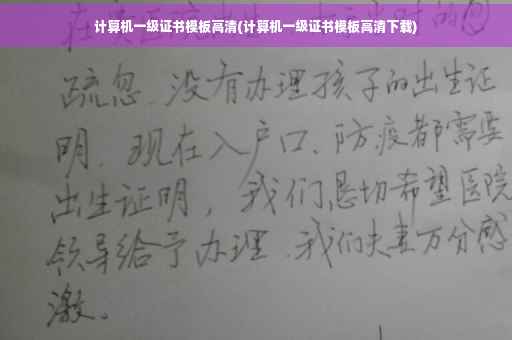 计算机一级证书模板高清(计算机一级证书模板高清下载)
疏忽、没有办理孩子的出生证
明、现在入户口、防疫都需要
出生证明，我们恳切希望医院
领导给予办理、我们夫妻万分感
激。